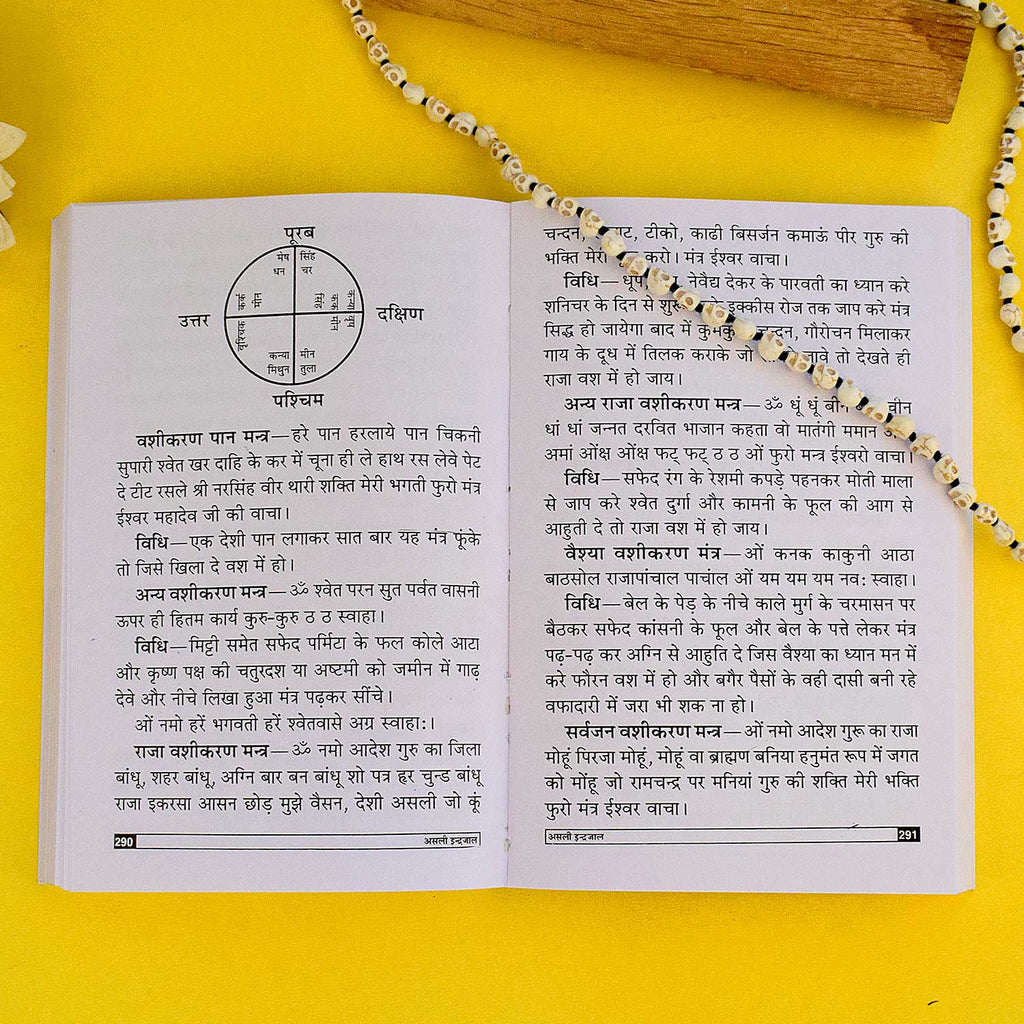 पूरब
मेष सिंह
धन चर
उत्तर
दक्षिण
कन्या मीन
मिथुन तुला
पश्चिम
वशीकरण पान मन्त्र—हरे पान हरलाये पान चिकनी
सुपारी श्वेत खर दाहि के कर में चूना ही ले हाथ रस लेवे पेट
दे टीट रसले श्री नरसिंह वीर थारी शक्ति मेरी भगती फुरो मंत्र
ईश्वर महादेव जी की वाचा।
विधि—एक देशी पान लगाकर सात बार यह मंत्र फूंके
तो जिसे खिला दे वश में हो।
अन्य वशीकरण मन्त्र—ॐ श्वेत परन सुत पर्वत वासनी
ऊपर ही हितम कार्य कुरु-कुरु ठ ठ स्वाहा।
विधि—मिट्टी समेत सफेद पर्मिटा के फल कोले आटा
और कृष्ण पक्ष की चतुरदश या अष्टमी को जमीन में गाढ़
देवे और नीचे लिखा हुआ मंत्र पढ़कर सींचे।
ओं नमो हरें भगवती हरें श्वेतवासे अग्र स्वाहाः।
राजा वशीकरण मन्त्र—ॐ नमो आदेश गुरु का जिला
बांधू, शहर बांधू, अग्नि बार बन बांधू शो पत्र हर चुन्ड बांधू
राजा इकरसा आसन छोड़ मुझे वैसन, देशी असली जो कूं
290 असली इन्द्रजाल
चन्दन, टीको, काढी बिसर्जन कमाऊं पीर गुरु की
भक्ति मेरी करो। मंत्र ईश्वर वाचा।
विधि—धूप, नेवैद्य देकर के पारवती का ध्यान करे
शनिचर के दिन से इक्कीस रोज तक जाप करे मंत्र
सिद्ध हो जायेगा बाद में चन्दन, गौरोचन मिलाकर
गाय के दूध में तिलक कराके जो जावे तो देखते ही
राजा वश में हो जाय।
अन्य राजा वशीकरण मन्त्र—ॐ धूं धूं चीन
धां धां जन्नत दरवित भाजान कहता वो मातंगी ममान
अमां ओंक्ष ओंक्ष फट् फट् ठ ठ ओं फुरो मन्त्र ईश्वरो वाचा।
विधि—सफेद रंग के रेशमी कपड़े पहनकर मोती माला
से जाप करे श्वेत दुर्गा और कामनी के फूल की आग से
आहुती दे तो राजा वश में हो जाय।
वैश्या वशीकरण मंत्र—ओं कनक काकुनी आठा
बाठसोल राजापांचाल पाचांल ओं यम यम यम नवः स्वाहा।
विधि—बेल के पेड़ के नीचे काले मुर्ग के चरमासन पर
बैठकर सफेद कांसनी के फूल और बेल के पत्ते लेकर मंत्र
पढ़-पढ़ कर अग्नि से आहुति दे जिस वैश्या का ध्यान मन में
करे फौरन वश में हो और बगैर पैसों के वही दासी बनी रहे
वफादारी में जरा भी शक ना हो।
सर्वजन वशीकरण मन्त्र—ओं नमो आदेश गुरू का राजा
मोहूं पिरजा मोहूं, मोहूं वा ब्राह्मण बनिया हनुमंत रूप में जगत
को मोंहू जो रामचन्द्र पर मनियां गुरु की शक्ति मेरी भक्ति
फुरो मंत्र ईश्वर वाचा।
असली इन्द्रजाल 291